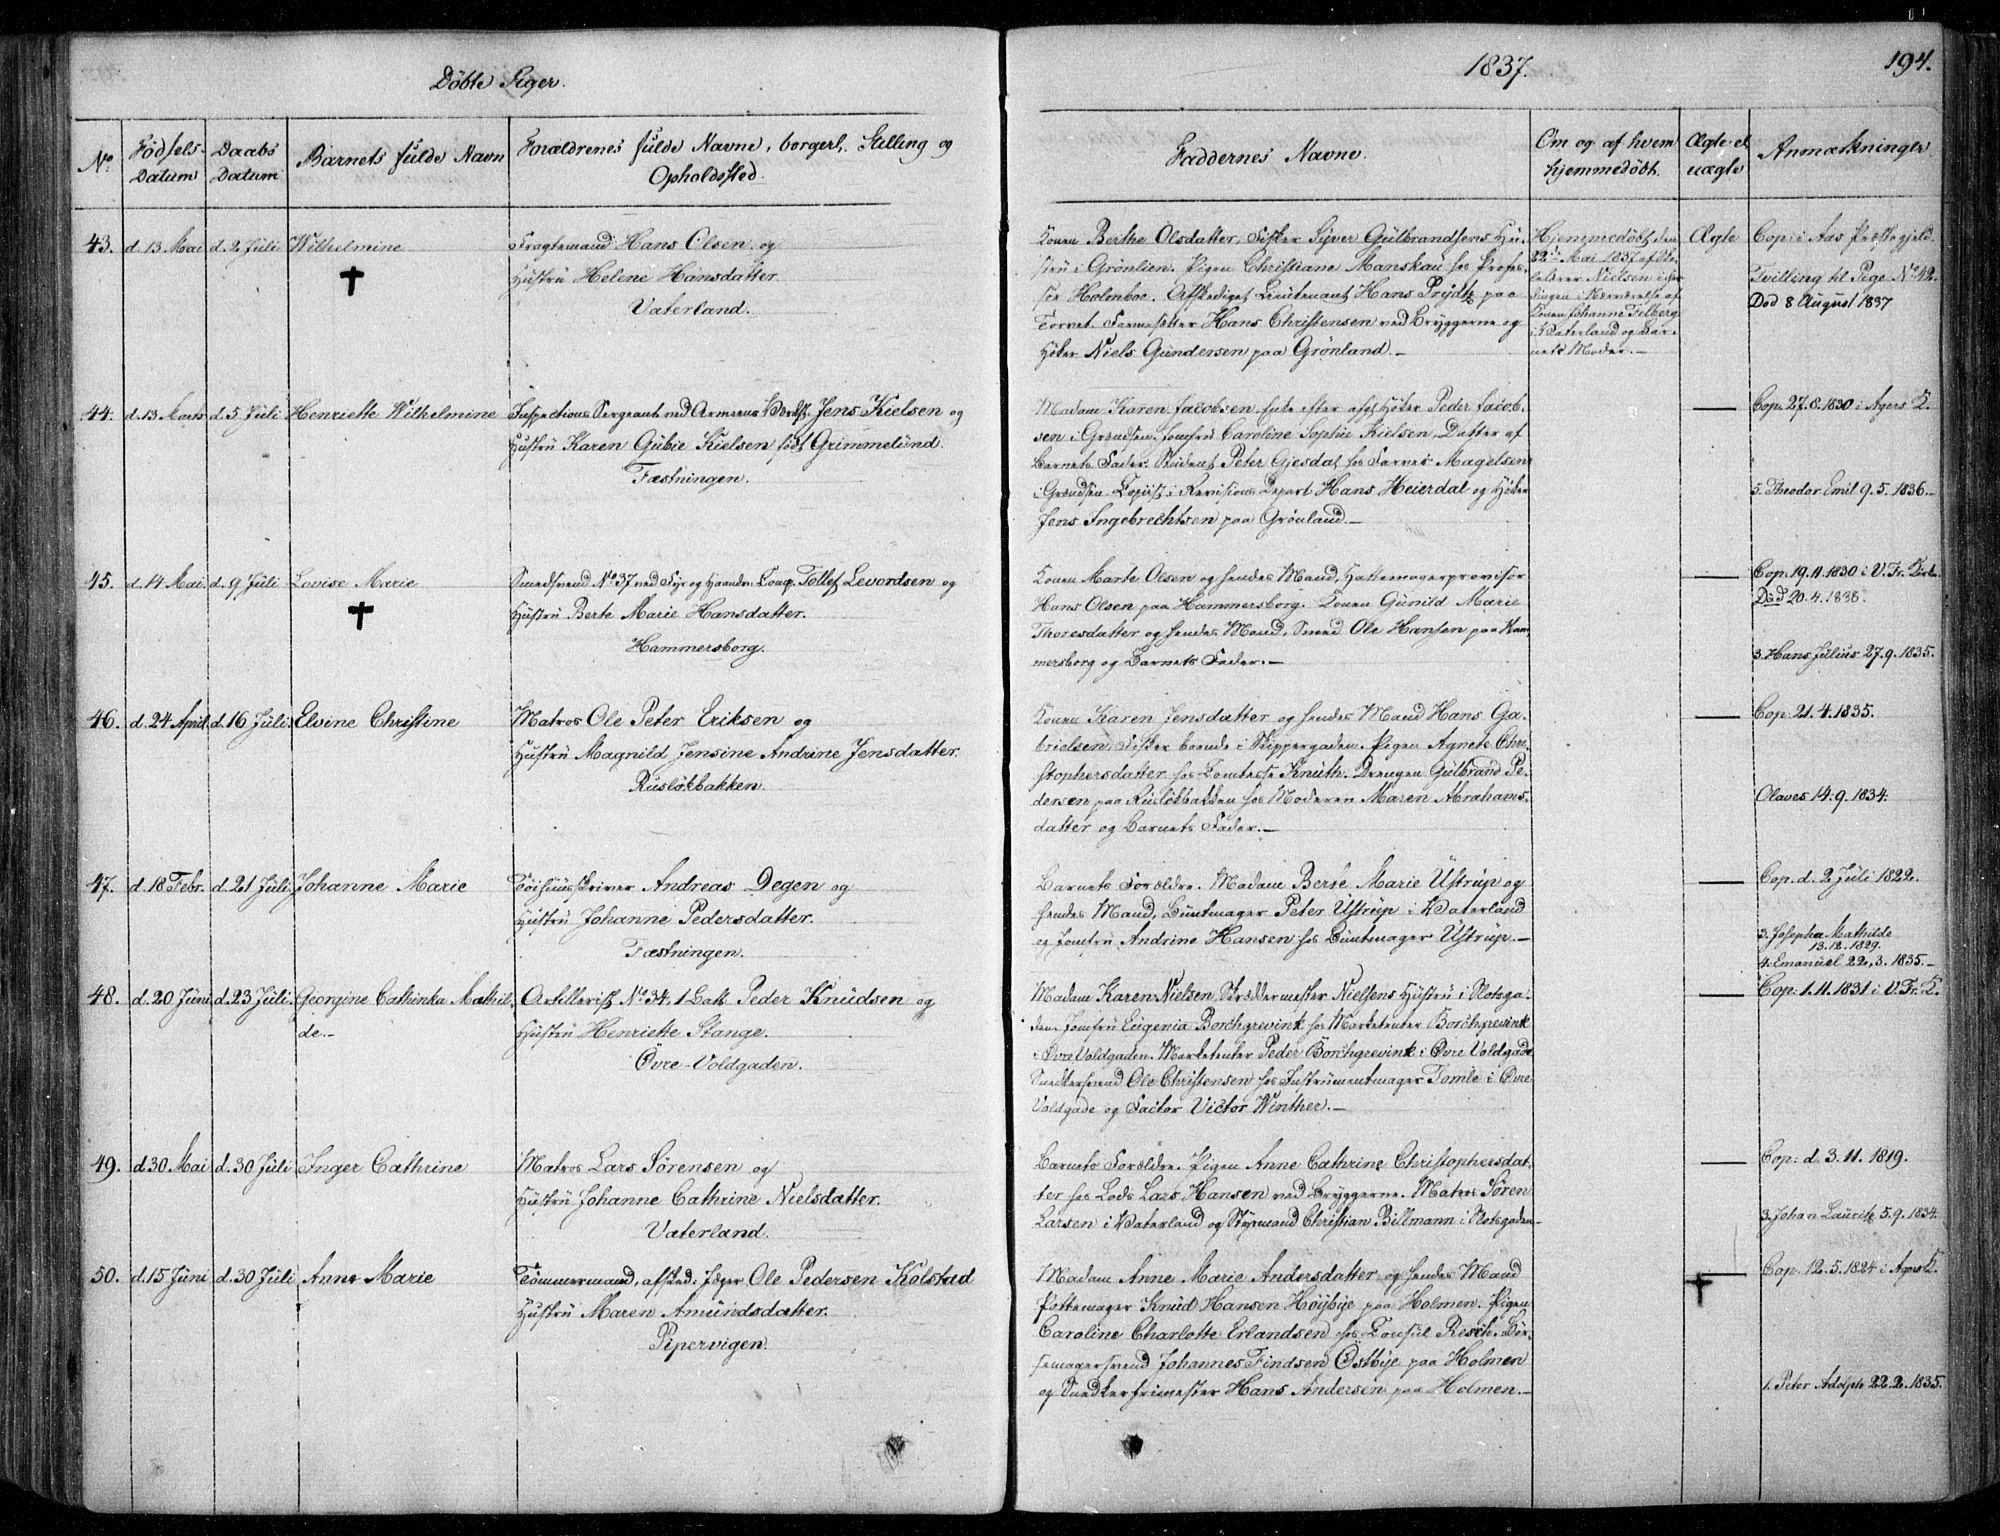 Döbte Piger.
1837.
194.
No.
Födsels-
Datum
Daabs
Datum
Barnets fulde Navn
Forældrenes fulde Navne, borgerl. Stilling og
Opholdssted.
Faddernes Navne.
Om og af hvem
hjemmedöbt.
Ægte el
uægte
Anmærkninger.
43. d. 13 Mai d. 2 Juli Wilhelmine
Fragtemand Hans Olsen og
Hustru Helene Hansdatter.
Vaterland.
Konen Berthe Olsdatter, Fisker Syver Gulbrandsens Hu-
stru i Grönlien. Pigen Christiane Manskau hos Profes-
sor Holmboe. Afskediget Lieutenant Hans Prydtz paa
Torvet. Farmesötter Hans Christensen ved Bryggerne og
Höker Niels Gundersen paa Grönland.-
Hjemmedöbt den
22de Mai 1837 af Ski-
belærer Nielsen i
i Nærværelse af
Konen Johanne Felberg
i Vaterland og Bar-
nets Moder.-
Ægte
Cop: i Aas Præstegjeld
Tvilling til Pige No 42.
Död 8 August 1837
44. d. 13 Marts d. 5 Juli Henriette Wilhelmine
Inspections Sergeant ved Armeens Værkst. Jens Kielsen og
Hustru Karen Gubie Kielsen födt Grimmelund.
Fæstningen.
Madam Karen Jacobsen Enke efter afg. Höker Peder Jacob-
sen i Grændsen. Jomfru Caroline Sophie Kielsen, Datter af
Barnets Fader. Student Peter Gjesdal hos Farver Magelsen
i Grændsen. Copiist i Revisions Depart. Hans Heierdal og Höker
Jens Ingebrechtsen paa Grönland.-
Cop. 27.8.1830 i Agers K.
5. Theodor Emil 9.5.1836.-
45. d. 14 Mai. d. 9 Juli Lovise Marie
Smedsvend No 37 ved Fyr og Haandv. Comp. Tollef Levordsen og
Hustru Berte Marie Hansdatter.
Hammersborg.
Konen Marte Olsen og hendes Mand, Hattemagerprovisor
Hans Olsen paa Hammersborg. Konen Gunild Marie
Thoresdatter og hendes Mand, Smed Ole Hansen paa Ham-
mersborg og Barnets Fader.-
Cop. 19.11.1830 i V. Fr. Kirke.
Död 20.4.1838.
3. Hans Julius 27.9.1835.
46. d. 24 April d. 16 Juli Elvine Christine
Matros Ole Peter Eriksen og
Hustru Magnild Jensine Andrine Jensdatter.
Ruslökbakken.
Konen Karen Jensdatter og hendes Mand Hans Ga-
brielsen, Fisker boende i Skippergaden. Pigen Agnete Chri-
stophersdatter hos Comtesse Knuth. Drengen Gulbrand Pe-
dersen paa Ruslökbakken hos Moderen Maren Abrahams-
datter og Barnets Fader.-
Cop. 21.4.1835.
Olaves 14.9.1834.
47. d. 18 Febr. d. 21 Juli. Johanne Marie
Töihuusskriver Andreas Degen og
Hustru Johanne Pedersdatter.
Fæstningen.
Barnets Forældre. Madam Berte Marie Ustrup og
hendes Mand, Buntmager Peter Ustrup i Vaterland
og Jomfru Andrine Hansen hos Buntmager Ustrup.-
Cop. d. 2 Juli 1822.
3. Josepha Mathilde
13.12.1829.
4. Emanuel 22.3.1835.-
48. d. 20 Juni d. 23 Juli. Georgine Cathinka Mathil-
de.-
Artillerist No 34. 1 Batt. Peder Knudsen og
Hustru Henriette Stange.
Övre-Voldgaden.
Madam Karen Nielsen, Skræddermester Nielsens Hustru i Slotsga-
den. Jomfru Eugenia Borchgrevink hos Marketenter Borchgrevink
i Övre Voldgaden. Marketenter Peder Borchgrevink i Övre Voldgade.
Snedkersvend Ole Christensen hos Instrumentmager Tomle i Övre
Voldgade og Factor Victor Winther.-
Cop: 1.11.1831 i V. Fr. K.
49. d. 30 Mai d. 30 Juli Inger Cathrine
Matros Lars Sörensen og
Hustru Johanne Cathrine Nielsdatter.
Vaterland.
Barnets Forældre. Pigen Anne Cathrine Christophersdat-
ter hos Lods Lars Hansen ved Bryggerne. Matros Sören
Larsen i Vaterland og Styrmand Christian Billmann i Slotsgaden-
Cop: d. 3.11.1819.
3. Johan Lauritz 5.9.1834.
50. d. 15 Juni d. 30 Juli Anne Marie
Tömmermand, afsked: Jæger Ole Pedersen Kolstad
Hustru Maren Amundsdatter.
Pipervigen.
Madam Anne Marie Andersdatter og hendes Mand
Pottemager Knud Hansen Höybye paa Holmen. Pigen
Caroline Charlotte Erlandsen hos Consul Resch. Bör-
semagersvend Johannes Findsen Östbye paa Holmen
og Snedkerfrimester Hans Andersen paa Holmen.-
Cop. 12.5.1824 i Agers K.
1. Peter Adolph 22.2.1835.